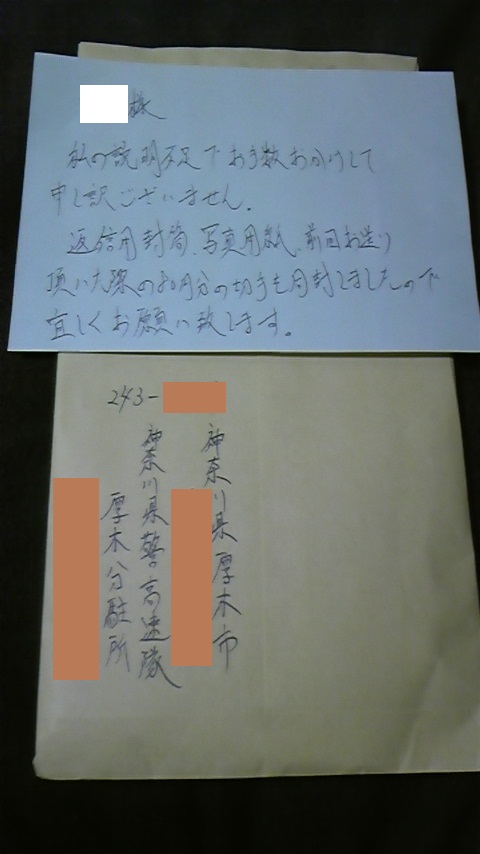 様
私の説明不足でお手数おかけして
申し訳ございません。
返信用封筒、写真用紙、前回お送り
頂いた際の80円分の切手も同封しましたので
宜しくお願い致します。
243-
神奈川県厚木市
神奈川県警高速隊
厚木分駐所